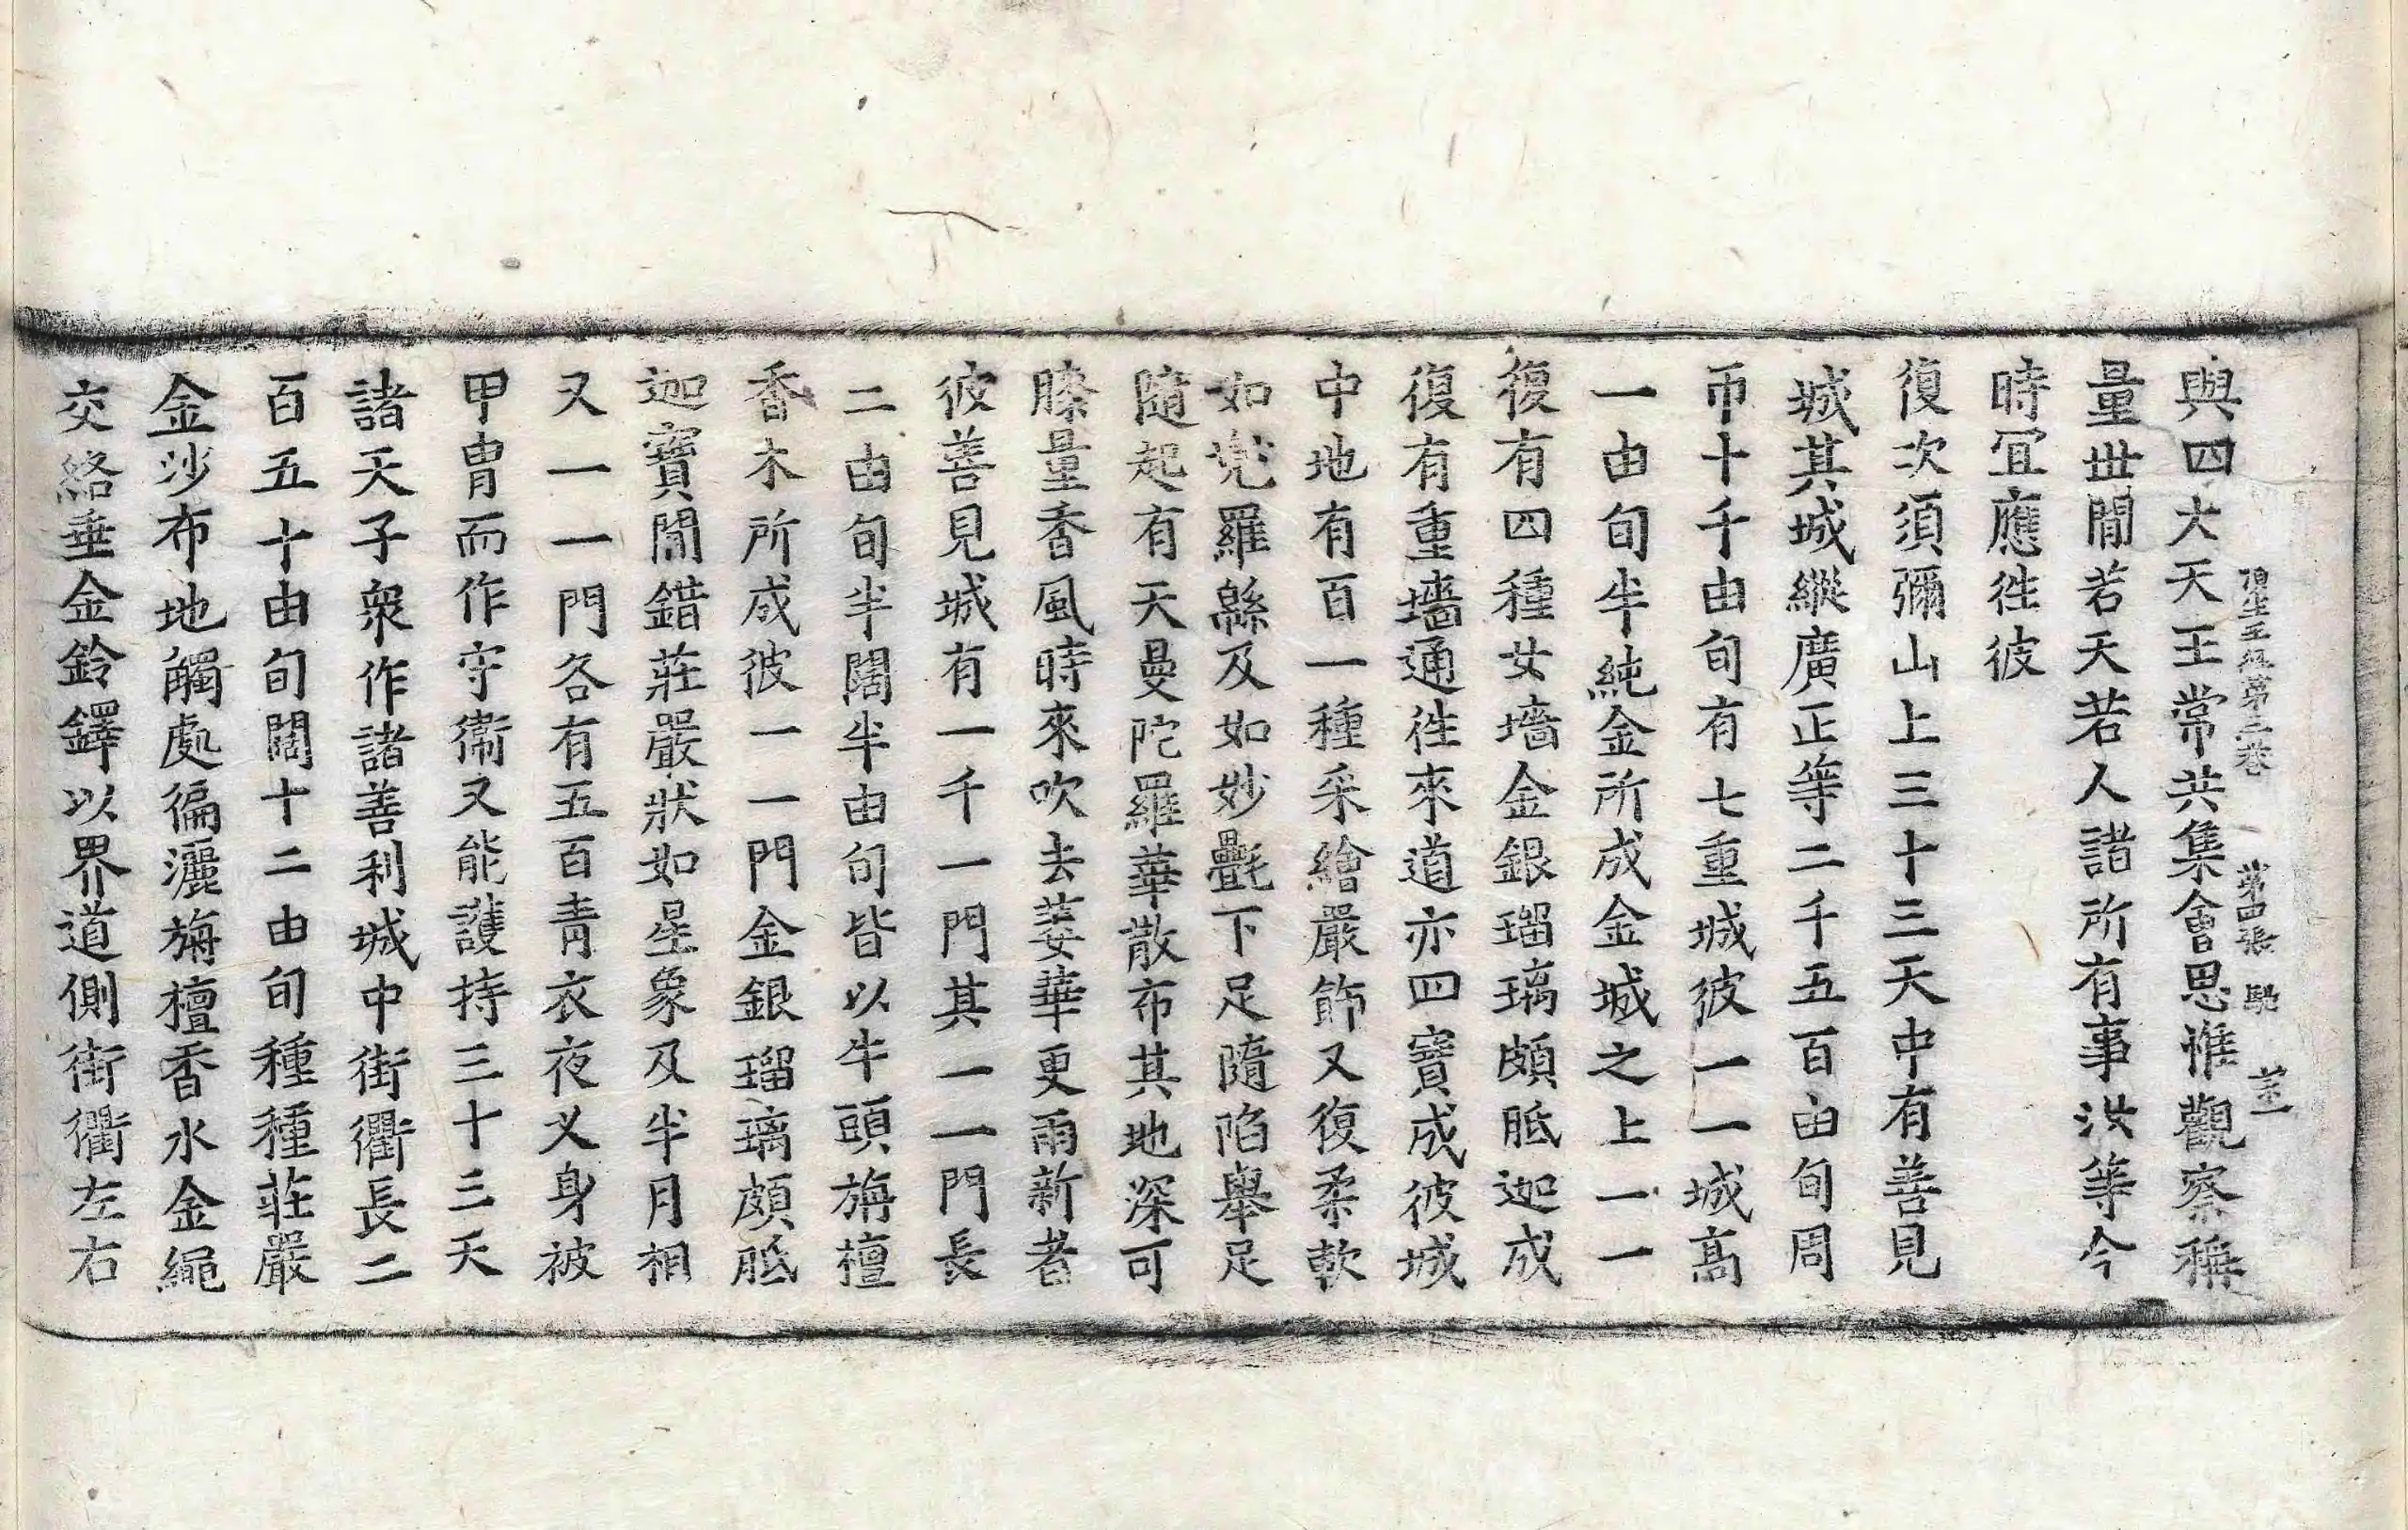 與四大天王常共集會思惟觀察稱
頂生王經第三卷 第四張 馳
量世閒若天若人諸所有事汝等今
時宜應往彼
復次須彌山上三十三天中有善見
城其城縱廣正等二千五百由旬周
帀十千由旬有七重城彼一一城高
一由旬半純金所成金城之上一一
復有四種女墻金銀瑠璃頗胝迦成
復有重墻通徃來道亦四寶成彼城
中地有百一種采繪嚴飾又復柔軟
如兜羅緜及如妙㲲下足隨陷舉足
隨起有天曼陀羅華散布其地深可
膝量香風時來吹去萎華更雨新者
彼善見城有一千一門其一一門長
二由旬半闊半由旬皆以牛頭旃檀
香木所成彼一一門金銀瑠璃頗胝
迦寶閒錯莊嚴狀如星象及半月相
又一一門各有五百青衣夜叉身被
甲冑而作守衞又能護持三十三天
諸天子衆作諸善利城中街衢長二
百五十由旬闊十二由旬種種莊嚴
金沙布地觸處徧灑旃檀香水金繩
交絡垂金鈴鐸以界道側街衢左右